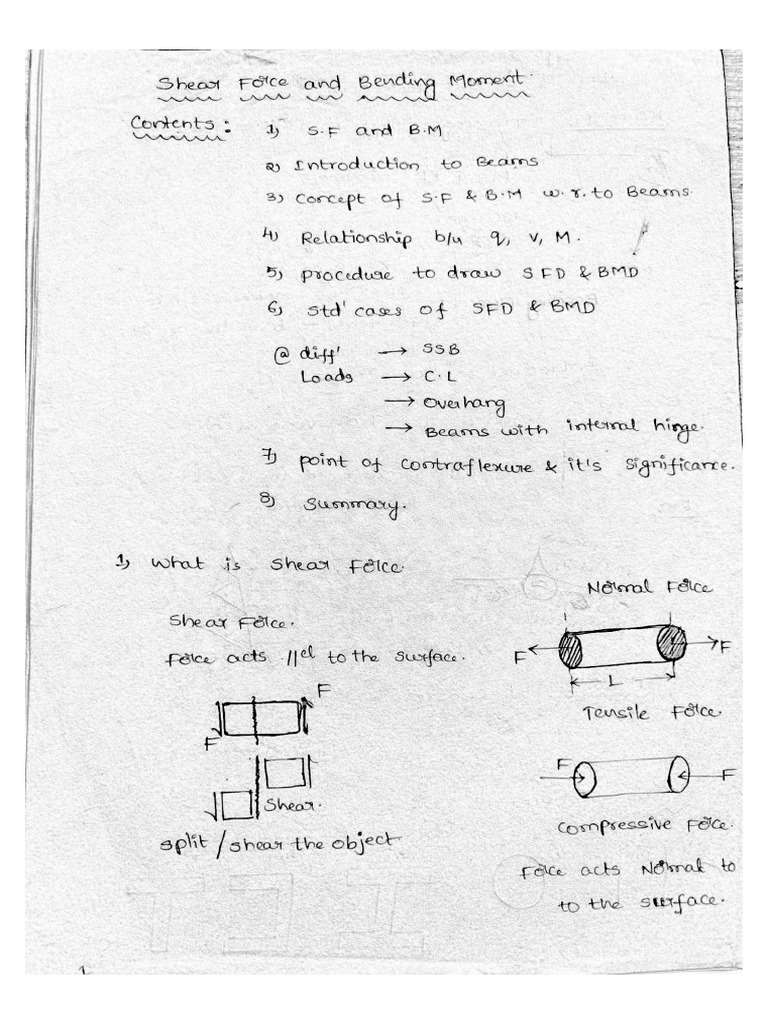 Shear Force and Bending Moment
Contents:
1) S.F and B.M
2) Introduction to Beams
3) Concept of S.F & B.M w.r.to Beams.
4) Relationship b/w q, v, M.
5) procedure to draw SFD & BMD
6) std' cases of SFD & BMD
@ diff' → SSB
Loads → C.L
→ Overhang
→ Beams with internal hinge.
7) point of contraflexure & it's significance.
8) Summary.
1) What is Shear Force.
Normal Force
Shear Force.
Force acts ||el to the surface.
F F
L
Tensile Force.
F
F
Shear.
split / shear the object
F F
Compressive Force.
Force acts Normal to
to the surface.